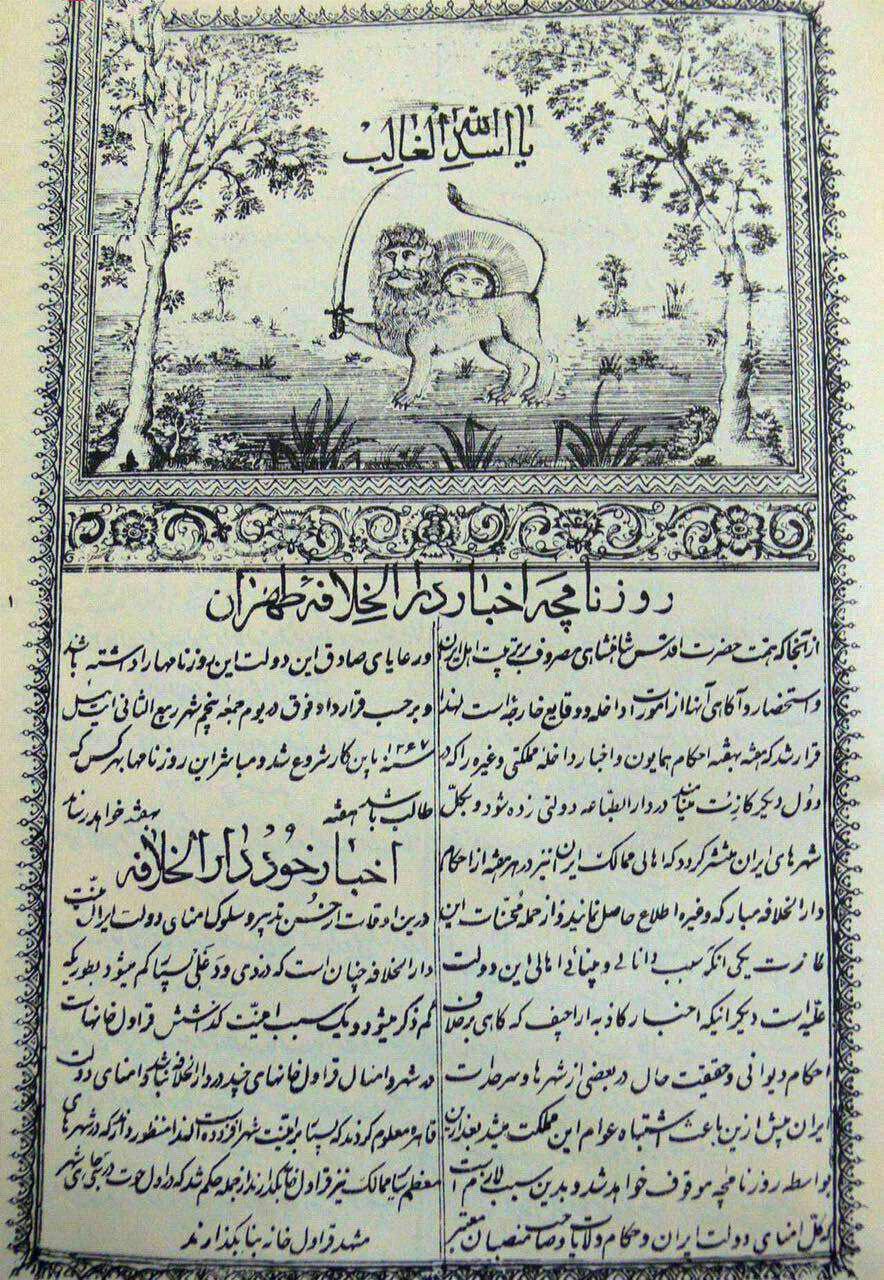 یا اسد الله الغالب
روزنامچه اخبار دار الخلافه طهران
۱
از آنجا که همت حضرت اقدس شاهنشاهی مصروف بر تربیت اهل ایران
و استحضار و آگاهی آنها از امورات داخله و وقایع خارجه است لهذا
قرار شد که هفته بهفته احکام همایون و اخبار داخله مملکتی و غیره را که در
دول دیگر کازت مینامند در دار الطباعه دولتی زده شود و بکل
شهرهای ایران منتشر گردد که اهالی ممالک ایران نیز در هر هفته از احکام
دار الخلافه مبارکه و غیره اطلاع حاصل نمایند و از جمله محسنات این
کازت یکی آنکه سبب دانائی و بینائی اهالی این دولت
علیه است دیگر اینکه اخبار کاذبه اراجیف که گاهی بر خلاف
احکام دیوانی و حقیقت حال در بعضی از شهرها و سرحدات
ایران پیش ازین باعث اشتباه عوام این مملکت میشد بعد ازین
بواسطه روزنامچه موقوف خواهد شد و بدین سبب لازم است
که کل امنای دولت ایران و حکام ولایات و صاحب منصبان معتبر
و رعایای صادق این دولت این روزنامها را داشته باشند
و برحسب قرارداد فوق در یوم جمعه پنجم شهر ربیع الثانی ایت ئیل
سنه ۱۲۶۷ باین کار شروع شد و مباشر این روزنامها بهر کس که
طالب باشد هفته بهفته خواهد رساند
اخبار خود دار الخلافه
درین اوقات از حسن تدبیر و سلوک امنای دولت ایران امنیت
دار الخلافه چنان است که دزدی و دغلی بسیار کم میشود بطوریکه
کم ذکر میشود و یک سبب امنیت گذاشتن قراول خانهاست
در شهر و امثال قراول خانهای چند در دار الخلافه بنا شد و امنای دولت
قاهره معلوم کردند که بسیار بر امنیت شهر افزوده است لهذا منظور دارند که در شهرهای
معظم سایر ممالک نیز قراول خانه بگذارند از جمله حکم شد که در اول حوت در بعضی جاهای شهر
مشهد قراول خانه بنا بگذارند